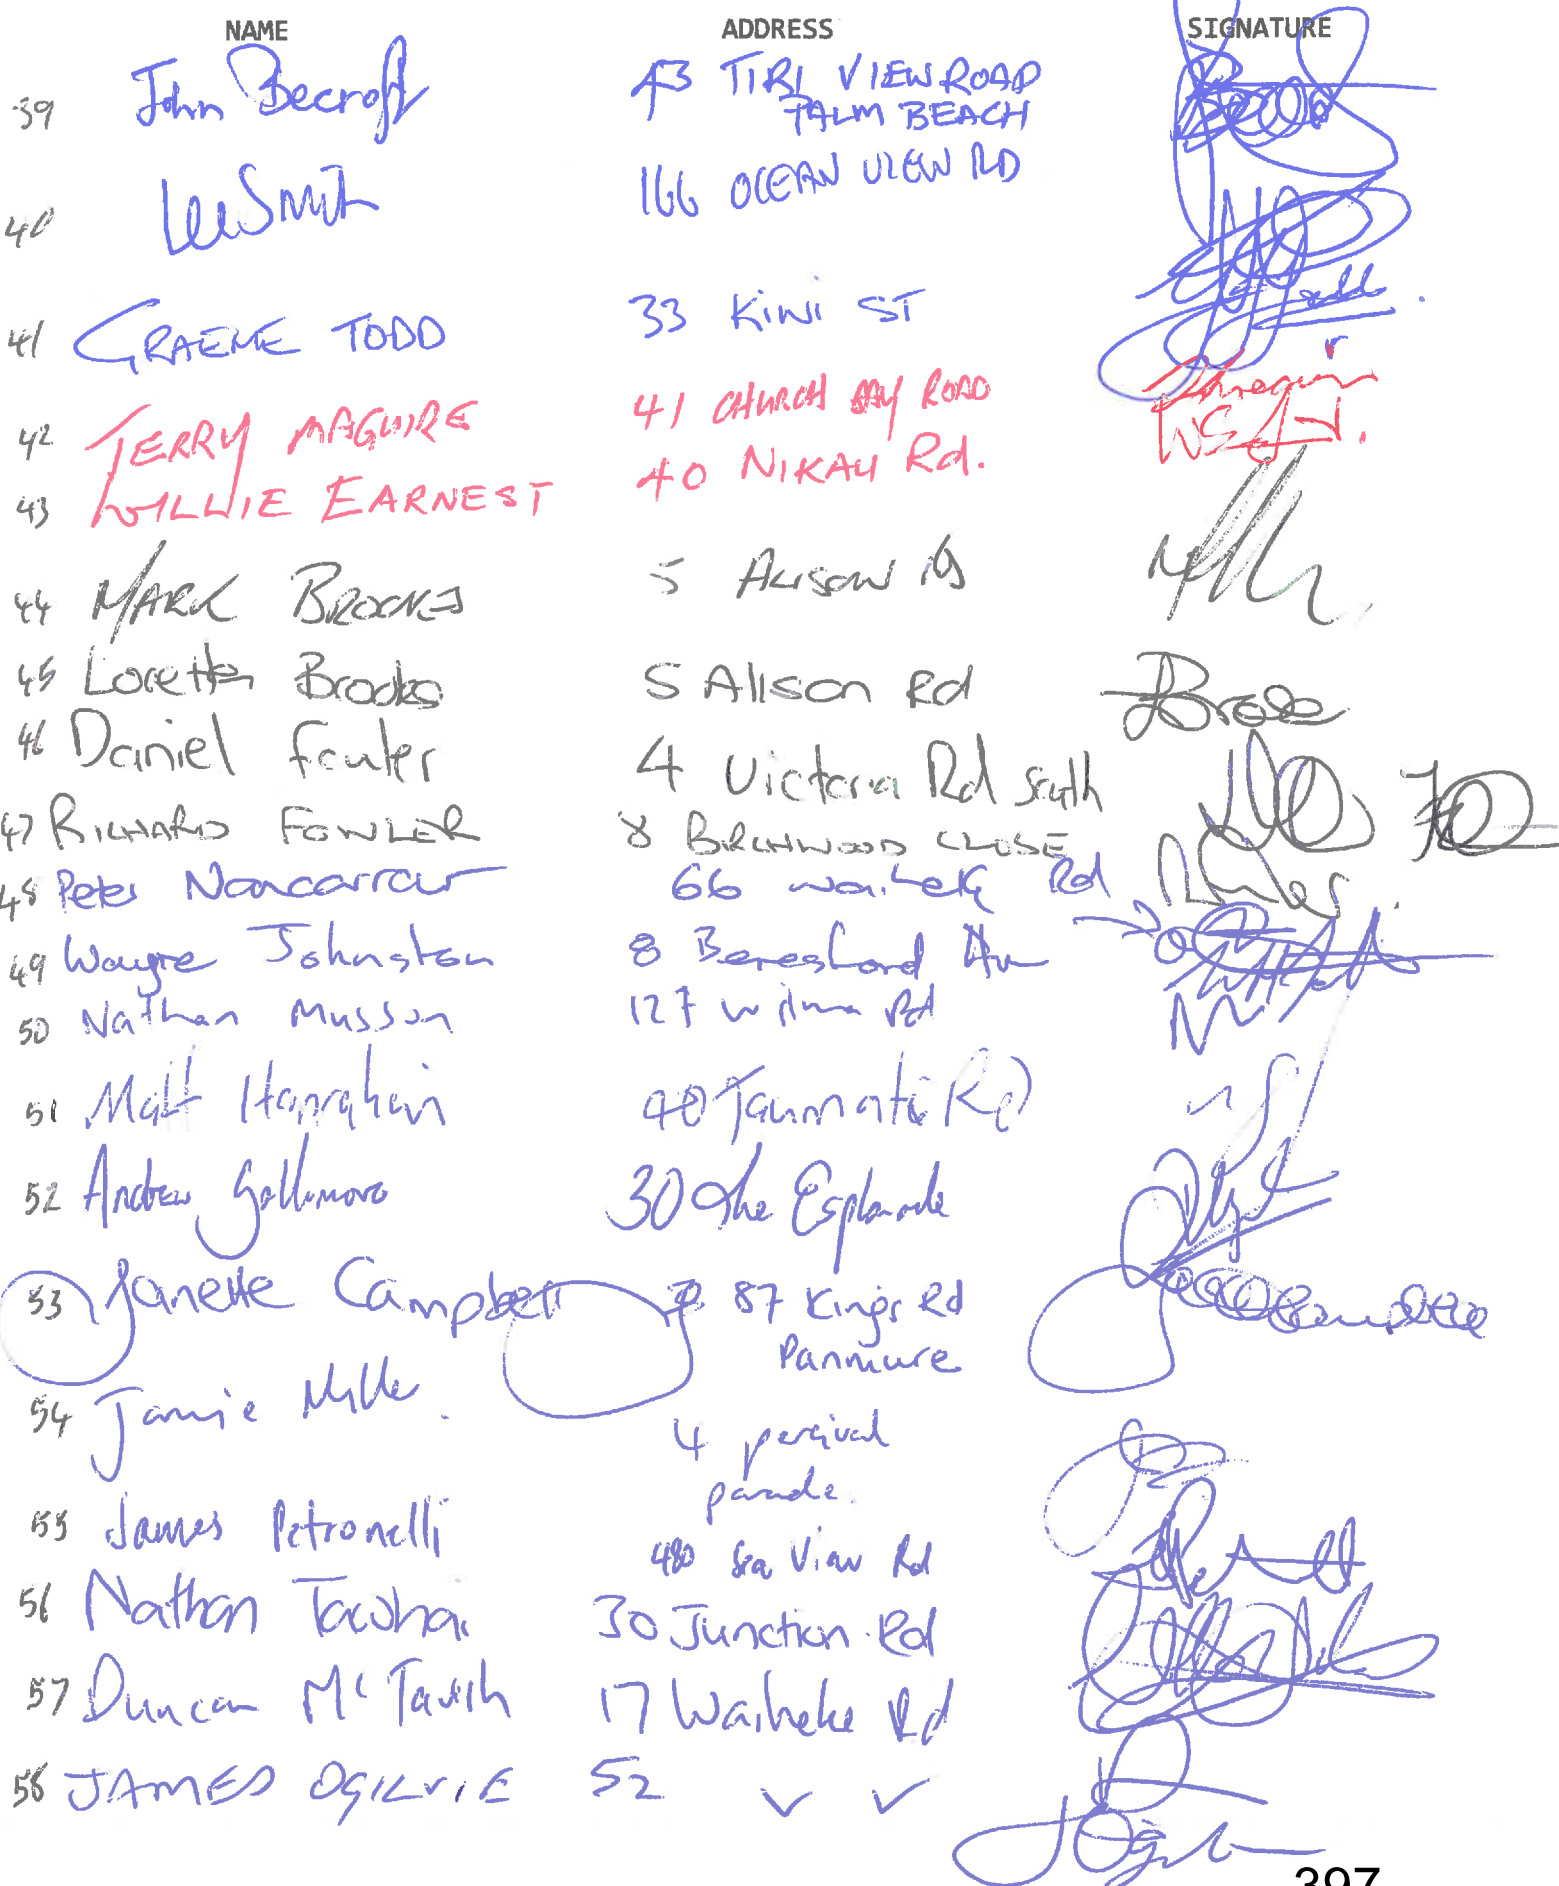 NAME ADDRESS SIGNATURE
39 John Becroft 43 TIRI VIEW ROAD
PALM BEACH
40 Lee Smith 166 OCEAN VIEW RD
41 GRAEME TODD 33 KIWI ST
42 TERRY MAGUIRE 41 CHURCH BAY ROAD
43 WILLIE EARNEST 40 NIKAU Rd.
44 MARK BROOKES 5 ALISON Rd
45 Loretta Brookes 5 Alison Rd
46 Daniel Fowler 4 Victoria Rd South
47 RICHARD FOWLER 8 BIRCHWOOD CLOSE
48 Peter 66 Waiheke Rd
49 Wayne Johnston 8 Beresford Av
50 Nathan Musson 127 Wilma Rd
51 Matt Hanrahan 40 Rd
52 Andrew Gollimore 30 The Esplanade
53 Janette Campbell 87 Kings Rd
Panmure
54 Jamie
4 percival
parade.
55 James Petronelli 480 Sea View Rd
56 Nathan Tawhai 30 Junction Rd
57 Duncan McTavish 17 Waiheke Rd
58 JAMES OGILVIE 52 ✓ ✓
397